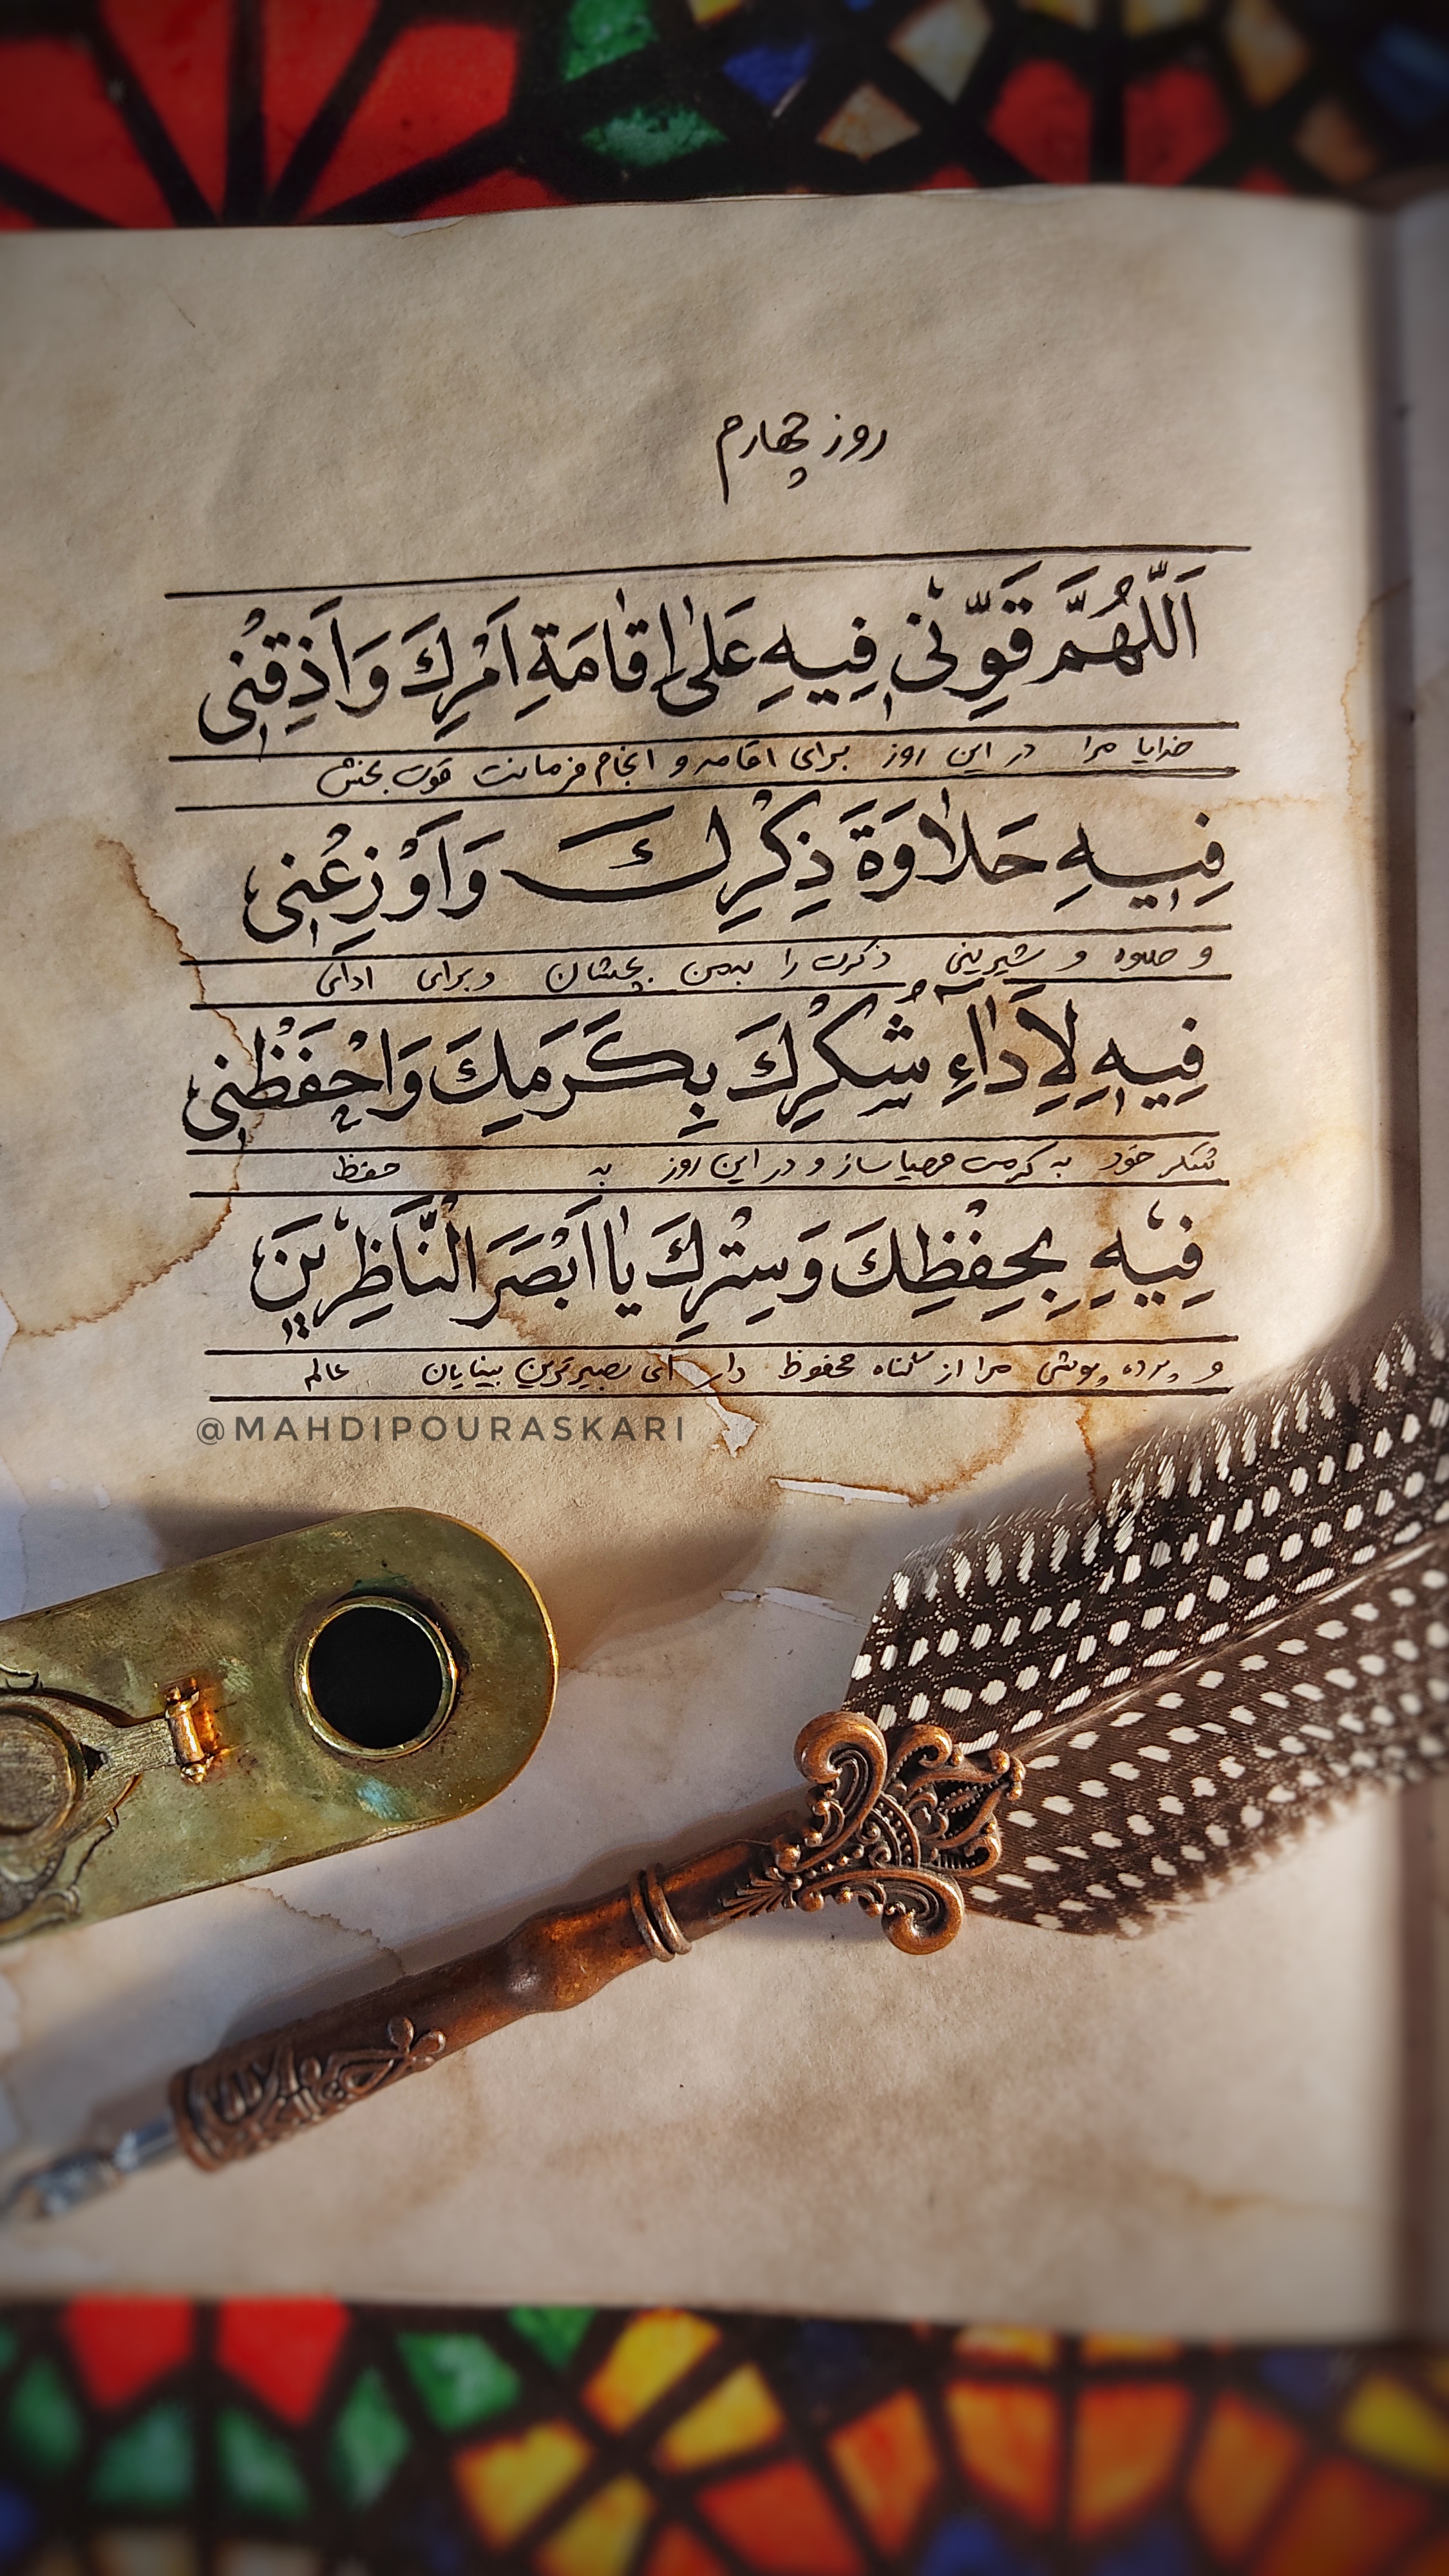 روز چهارم
اَللّهُمَّ قَوِّنی فِیهِ عَلیٰ اِقٰامَةِ اَمْرِكَ وَاَذِقْنی
خدایا مرا در این روز برای اقامه و انجام فرمانت قوت بخش
فِیهِ حَلاٰوَةَ ذِكْرِكَ وَاَوْزِعْنی
و حلاوه و شیرینی ذکرت را به من بچشان و برای ادای
فِیهِ لِاَدٰاۤءِ شُكْرِكَ بِكَرَمِكَ وَاحْفَظْنی
شکر خود به کرمت مهیا ساز و در این روز به حفظ
فِیْهِ بِحِفْظِكَ وَسِتْرِكَ یٰا اَبْصَرَ النّاَظِرْینَ
و پرده پوشی مرا از گناه محفوظ دار ای بصیرترین بینایان عالم
@MAHDIPOURASKARI